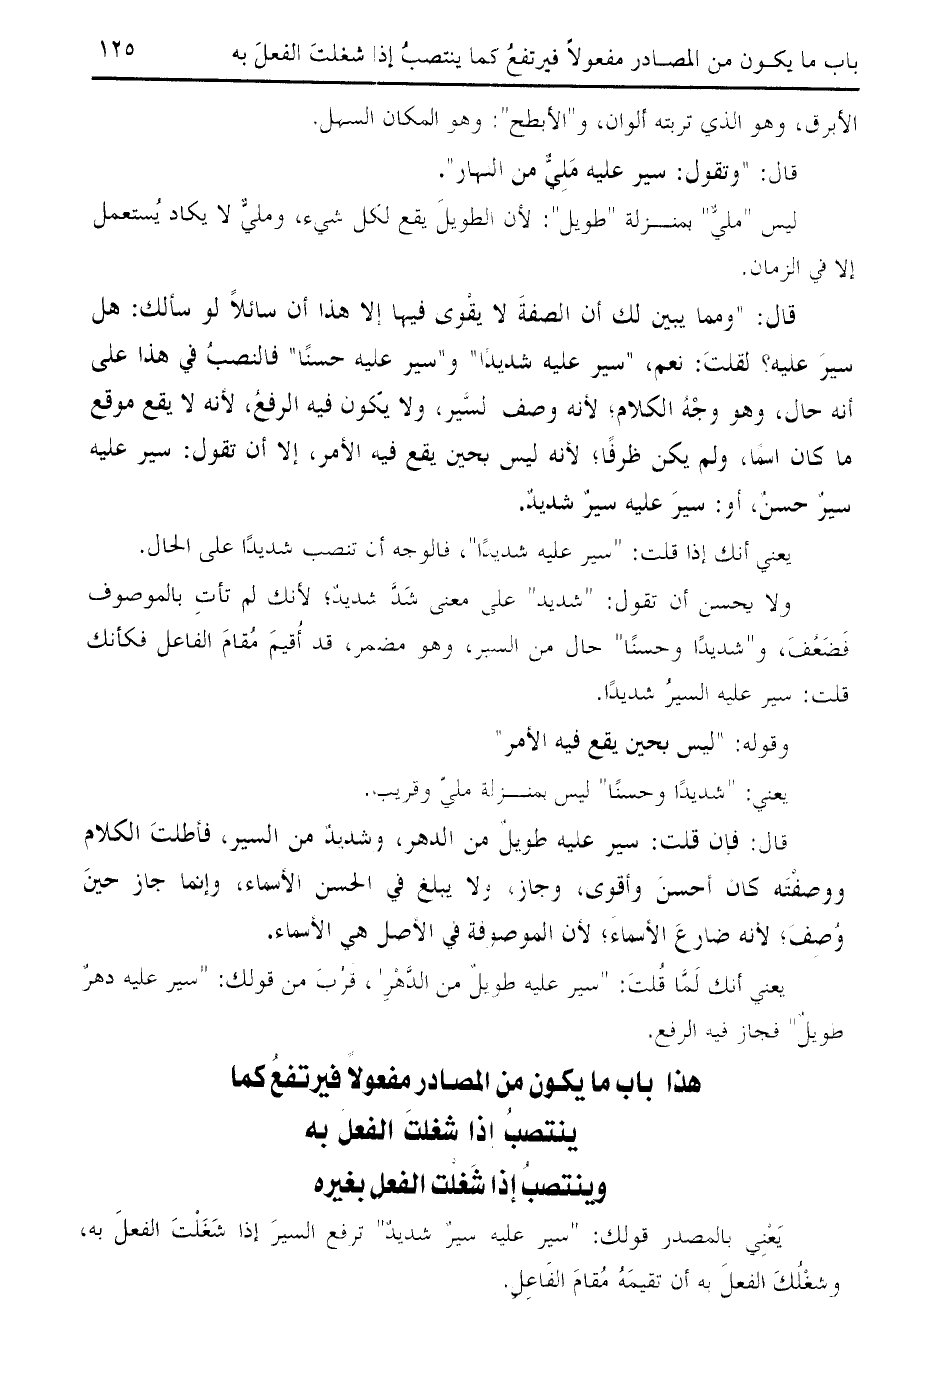 باب ما يكون من المصادر مفعولاً فيرتفعُ كما ينتصبُ إذا شغلتَ الفعلَ به ١٢٥
الأبرق، وهو الذي تربته ألوان، و"الأبطح": وهو المكان السهل.
قال: "وتقول: سير عليه مَليٌّ من النهار".
ليس "مليٌّ" بمنـزلة "طويل": لأن الطويلَ يقع لكل شيء، ومليٌّ لا يكاد يُستعمل
إلا في الزمان.
قال: "ومما يبين لك أن الصفةَ لا يقْوى فيها إلا هذا أن سائلاً لو سألك: هل
سيرَ عليه؟ لقلتَ: نعم، "سير عليه شديدًا" و"سير عليه حسنًا" فالنصبُ في هذا على
أنه حال، وهو وجْهُ الكلام؛ لأنه وصف لسَّير، ولا يكون فيه الرفعُ، لأنه لا يقع موقع
ما كان اسمًا، ولم يكن ظرفًا؛ لأنه ليس بحين يقع فيه الأمر، إلا أن تقول: سير عليه
سيرٌ حسنٌ، أو: سيرَ عليه سيرٌ شديدٌ.
يعني أنك إذا قلت: "سير عليه شديدًا"، فالوجه أن تنصب شديدًا على الحال.
ولا يحسن أن تقول: "شديد" على معنى شَدَّ شديدٌ؛ لأنك لم تأتِ بالموصوف
فَضَعُفَ، و"شديدًا وحسنًا" حال من السير، وهو مضمر، قد أُقيمَ مُقامَ الفاعل فكأنك
قلت: سير عليه السيرُ شديدًا.
وقوله: "ليس بحين يقع فيه الأمر"
يعني: "شديدًا وحسنًا" ليس بمنـزلة مليّ وقريب.
قال: فإن قلت: سير عليه طويلٌ من الدهر، وشديدٌ من السير، فأطلتَ الكلام
ووصفْتَه كان أحسنَ وأقوى، وجاز، ولا يبلغ في الحسن الأسماء، وإنما جاز حينَ
وُصفَ؛ لأنه ضارعَ الأسماءَ؛ لأن الموصوفة في الأصل هي الأسماء.
يعني أنك لَمَّا قُلتَ: "سير عليه طويلٌ من الدَّهْرِ"، قرُبَ من قولك: "سير عليه دهرٌ
طويلٌ" فجاز فيه الرفع.
هذا باب ما يكون من المصادر مفعولاً فيرتفعُ كما
ينتصبُ إذا شغلتَ الفعلَ به
وينتصبُ إذا شَغَلْت الفعل بغيره
يَعْنِي بالمصدر قولك: "سير عليه سيرٌ شديدٌ" ترفع السيرَ إذا شَغَلْتَ الفعلَ به،
وشغْلُكَ الفعلَ به أن تقيمَهُ مُقامَ الفَاعِلِ.